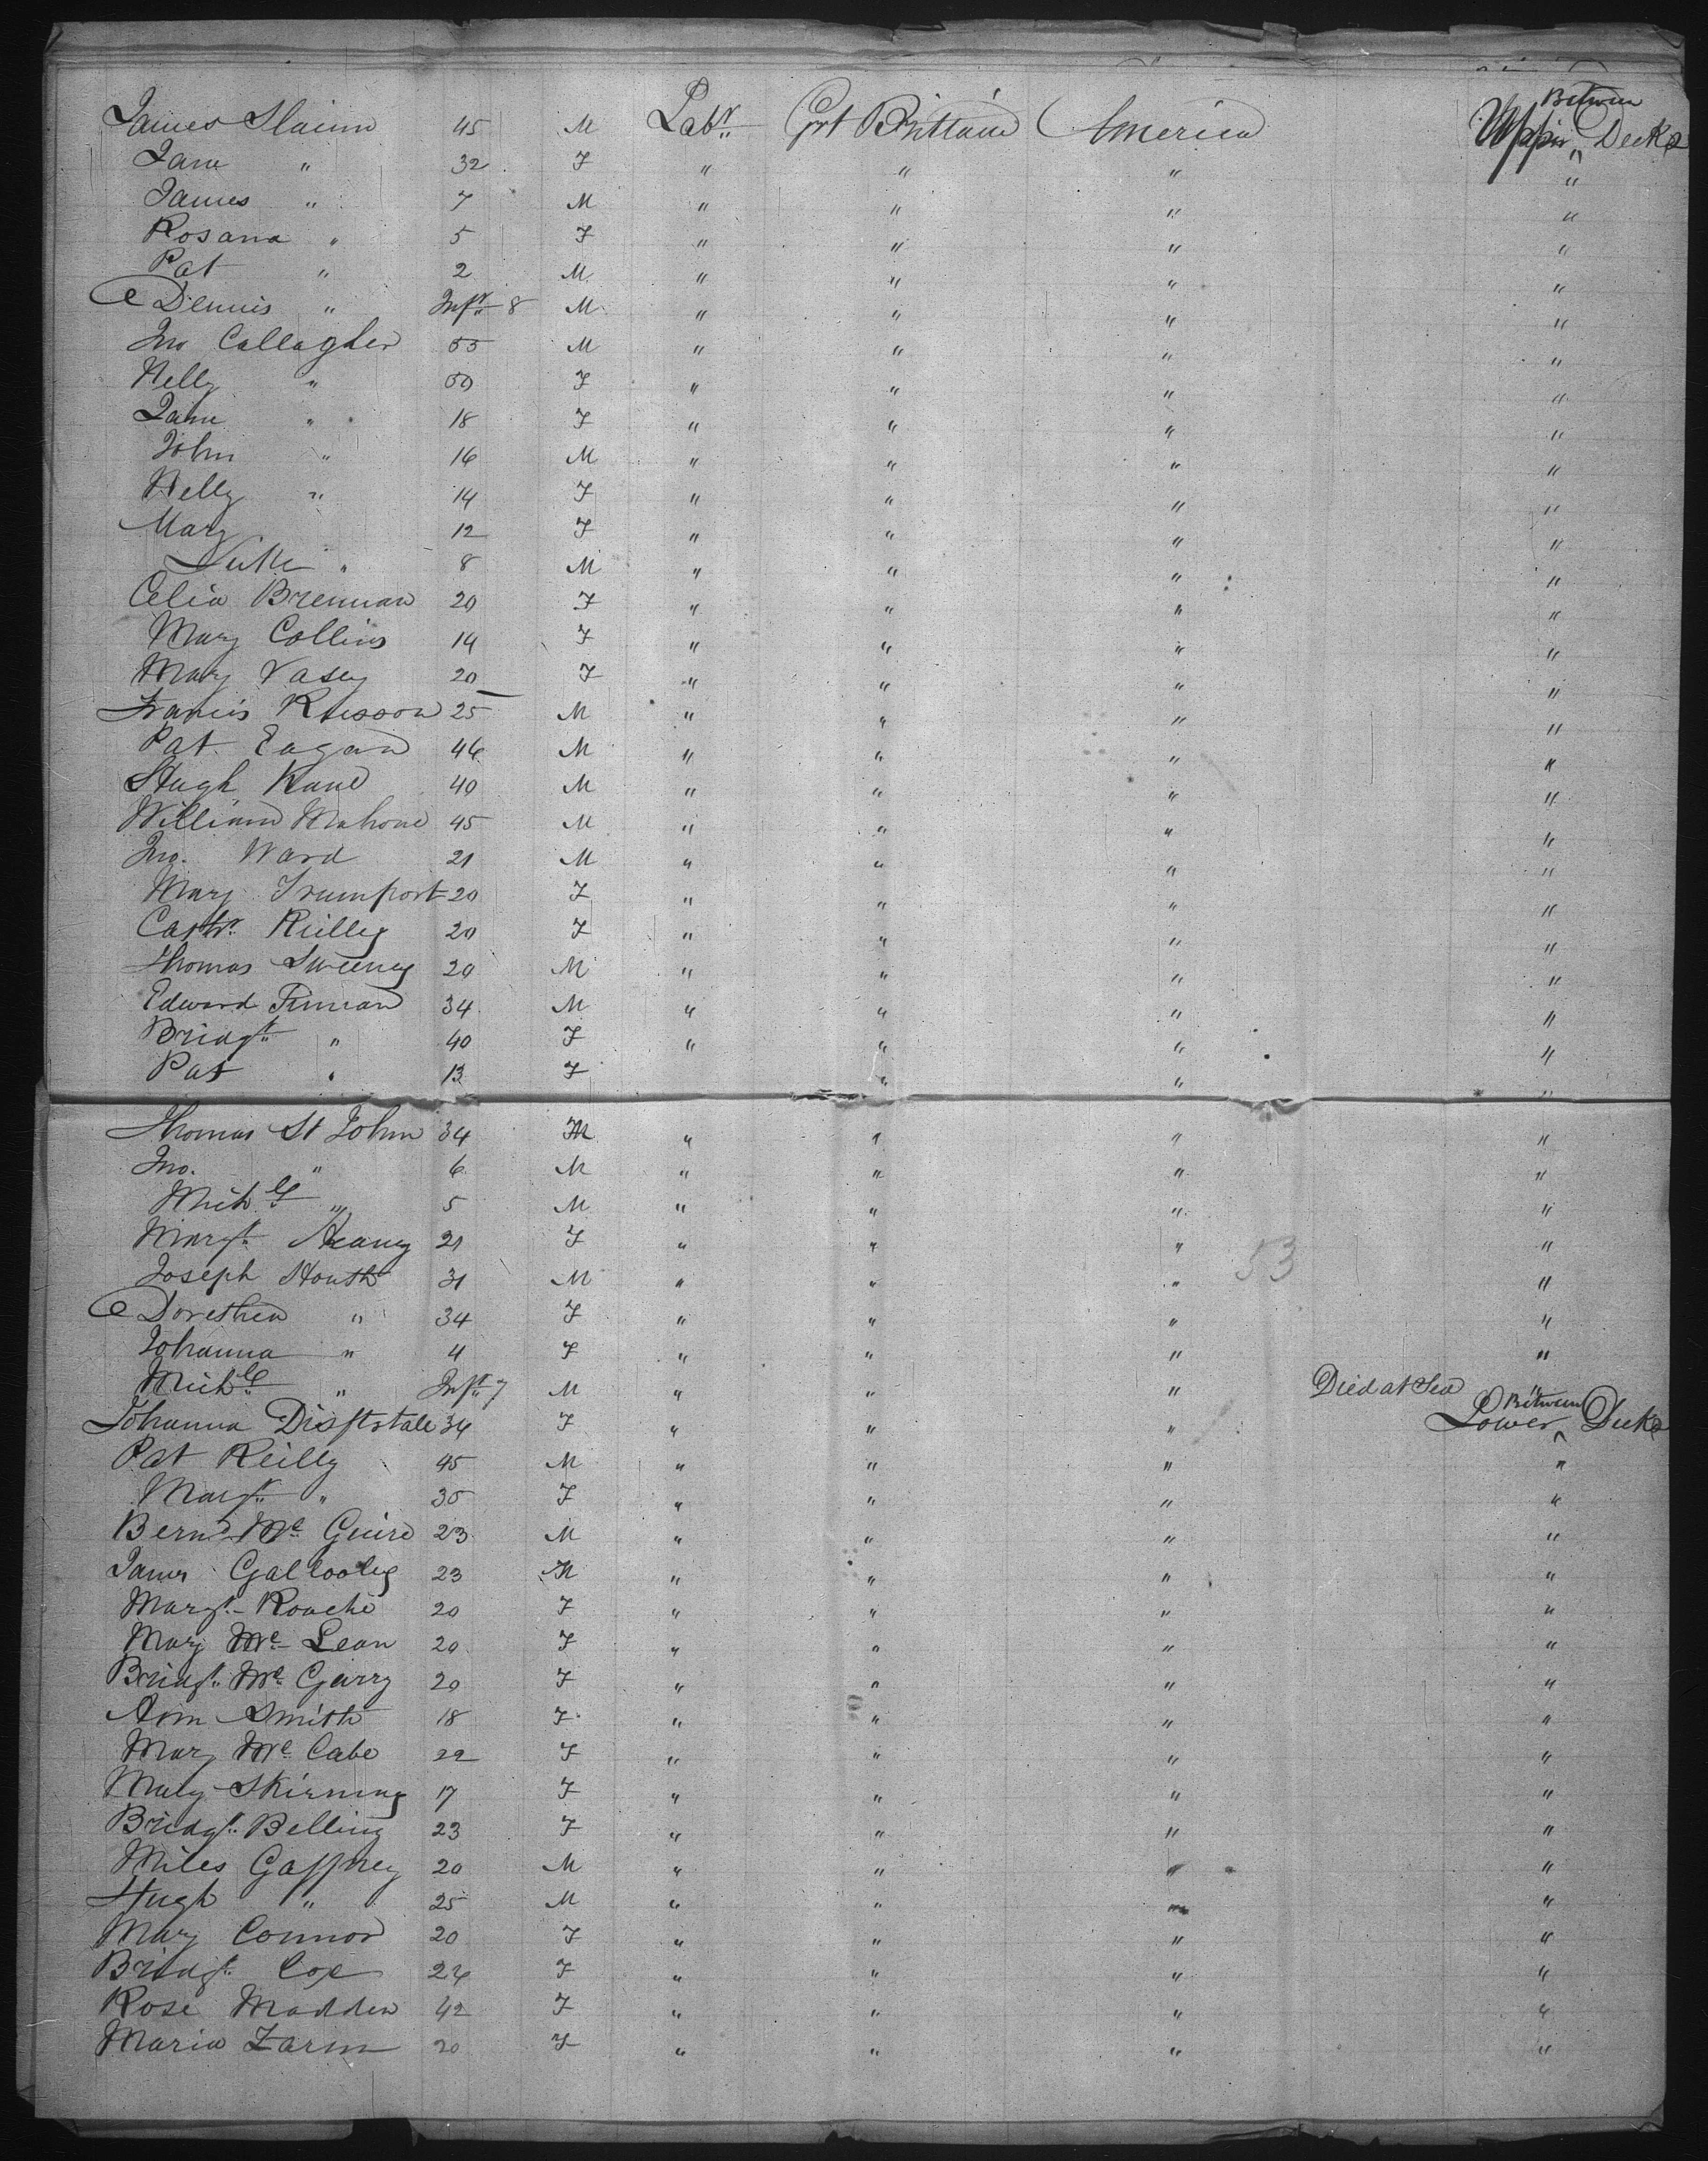 James Slaimn 45 M Labr. Grt Brittain America Upper Between Decks
Jane " 32 F " " " "
James " 7 M " " " "
Rosana " 5 F " " " "
Pat " 2 M " " " "
Dennis " Inft. 8 M " " " "
Jno Callagher 55 M " " " "
Nelly " 50 F " " " "
Jane " 18 F " " " "
John " 16 M " " " "
Nelly " 14 F " " " "
Mary 12 F " " " "
Luke " 8 M " " " "
Celia Brennan 20 F " " " "
Mary Collins 14 F " " " "
Mary Vasey 20 F " " " "
Francis 25 M " " " "
Pat Eagan 46 M " " " "
Hugh Kane 40 M " " " "
William Mahone 45 M " " " "
Jno. Ward 21 M " " " "
Mary Trumport 20 F " " " "
Cathr. Reilley 20 F " " " "
Thomas Sweeney 20 M " " " "
Edward Finnan 34 M " " " "
Bridgt. " 40 F " " " "
Pat " 13 F " " "
Thomas St John 34 M " " " "
Jno. " 6 M " " " "
Michl. " 5 M " " " "
Margt. 21 F " " " "
Joseph South 31 M " " " "
Dorethea " 34 F " " " "
Johanna " 4 F " " " "
Michl. " Inft. 7 M " " " Died at Sea "
Johanna Disftstale 34 F " " " Lower Between Decks
Pat Reilly 45 M " " " "
Margt. " 35 F " " " "
Bernd. Mc Guire 23 M " " " "
James Gallooley 23 M " " " "
Margt. Roache 20 F " " " "
Mary Mc Lean 20 F " " " "
Bridgt. Mc Garry 20 F " " " "
Ann Smith 18 F " " " "
Mary Mc Cabe 22 F " " " "
Mary Skirning 17 F " " " "
Bridgt. Belling 23 F " " " "
Miles Gaffney 20 M " " " "
Hugh " 25 M " " " "
Mary Connor 20 F " " " "
Bridgt. Cox 26 F " " " "
Rose Madden 42 F " " " "
Maria Farm 20 F " " " "
53